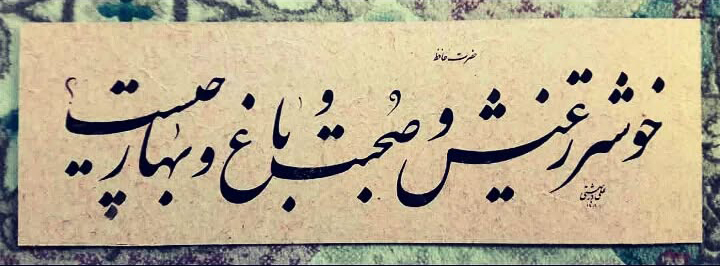 حضرت حافظ
خوشتر ز عیش و صحبت و باغ و بهار چیست؟